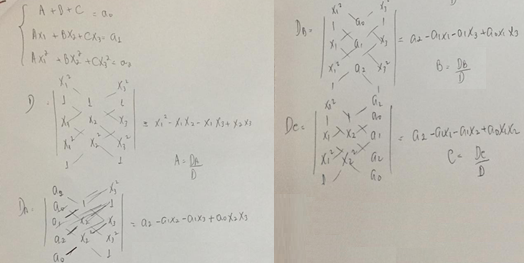 A + B + C = a₀
Ax₁ + Bx₂ + Cx₃ = a₂
Ax₁² + Bx₂² + Cx₃² = a₂
D =
x₁² x₃²
1 1 1
x₁ x₂ x₃
x₁² x₂² x₃²
1 1
= x₁² - x₁x₂ - x₁x₃ + x₂x₃
A = Da/D
a₂ x₃²
a₀ 1 1
a₁ x₂ x₃
a₂ x₂² x₃²
a₀ 1
= a₂ - a₁x₂ - a₁x₃ + a₀x₂x₃
x₁² x₃²
1 a₀ 1
x₁ a₁ x₃
x₁² a₂ x₃²
1 1
= a₂ - a₁x₁ - a₁x₃ + a₀x₁x₃
B = DB/D
Dc =
x₁² a₂
1 1 a₀
x₁ x₂ a₁
x₁² x₂² a₂
1 a₀
= a₂ - a₁x₁ - a₁x₂ + a₀x₁x₂
C = Dc/D